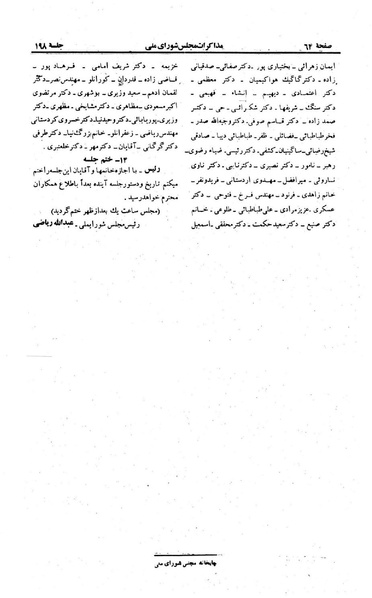 صفحهٔ ۶۲
مذاکرات مجلس شورای ملی
جلسهٔ ۱۹۸
ایمان زهرائی ـ بختیاری پور ـ دکتر صفائی ـ صدقیانی
زاده ـ دکتر گاگیک هواکیمیان ـ دکتر معظمی ـ
دکتر اعتمادی ـ دیهیم ـ انشاء ـ فهیمی ـ
دکتر سنگ ـ شریفها ـ دکتر شکرائی ـ حی ـ دکتر
صمد زاده ـ دکتر قاسم صوفی ـ دکتر وجیه‌الله صدر ـ
فخرطباطبائی ـ فضائلی ـ ظفر ـ طباطبائی دیبا ـ صادقی
شیخ رضائی ـ ساگینیان ـ کشفی ـ دکتر رئیسی ـ ضیاء رضوی ـ
رهبر ـ نامور ـ دکتر نصیری ـ دکتر نابی ـ دکتر ناوی
ناروئی ـ میرافضل ـ مهدوی اردستانی ـ فریدونفر ـ
خانم زاهدی ـ فرنود ـ مهندس فرخ ـ فتوحی ـ دکتر
عسکری ـ عزیزمرادی ـ علی طباطبائی ـ طلوعی ـ خانم
دکتر صنیع ـ دکتر سعید حکمت ـ دکتر محققی ـ اسمعیل
خزیمه ـ دکتر شریف امامی ـ فرهاد پور ـ
قاضی زاده ـ قدردان ـ کورانلو ـ مهندس نصر ـ دکتر
لقمان ادهم ـ سعید وزیری ـ بوشهری ـ دکتر مرتضوی
اکبر مسعودی ـ مظاهری ـ دکتر مشایخی ـ مظهری ـ دکتر
وزیری ـ پوربابائی ـ دکتر وحیدنیا ـ دکتر خسروی کردستانی
مهندس ریاضی ـ زعفرانلو ـ خانم بزرگ‌نیا ـ دکتر طرفی
دکتر گرگانی ـ آقایان ـ دکتر مهر ـ دکتر خلعتبری ـ
۱۳ـ ختم جلسه
رئیس ـ با اجازه خانمها و آقایان این جلسه را ختم
میکنم تاریخ و دستور جلسه آینده بعداً باطلاع همکاران
محترم خواهد رسید .
(مجلس ساعت یک بعد از ظهر ختم گردید)
رئیس مجلس شورایملی ـ عبدالله ریاضی
چاپخانه مجلس شورای ملی